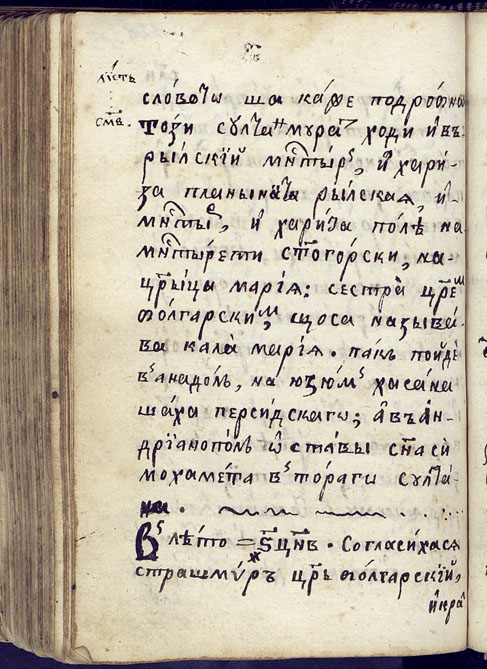 листъ
смв҃.
словото ша каже подробно
този султанъ муратъ ходи и въ
рылскїй мн҃стырь, и хари-
за планината рылская, и
мн҃стырь, и хариза полѣ на
мн҃стырети ст҃огорски, на
цр҃ыца марїя: сестра цр҃ем
болгарским, щоса называ-
ва кала марїя. пакъ пойде
въ анадолъ, на юзюмъ хасана
шаха персидскаго; а въ ан-
дрїанополъ ѡстави сн҃а си
мохамета въ тораги султа-
на.
Въ лѣто = ѕ҃цнв. Согласихася
страшмиръ цр҃ь болгарскїй,
и кра